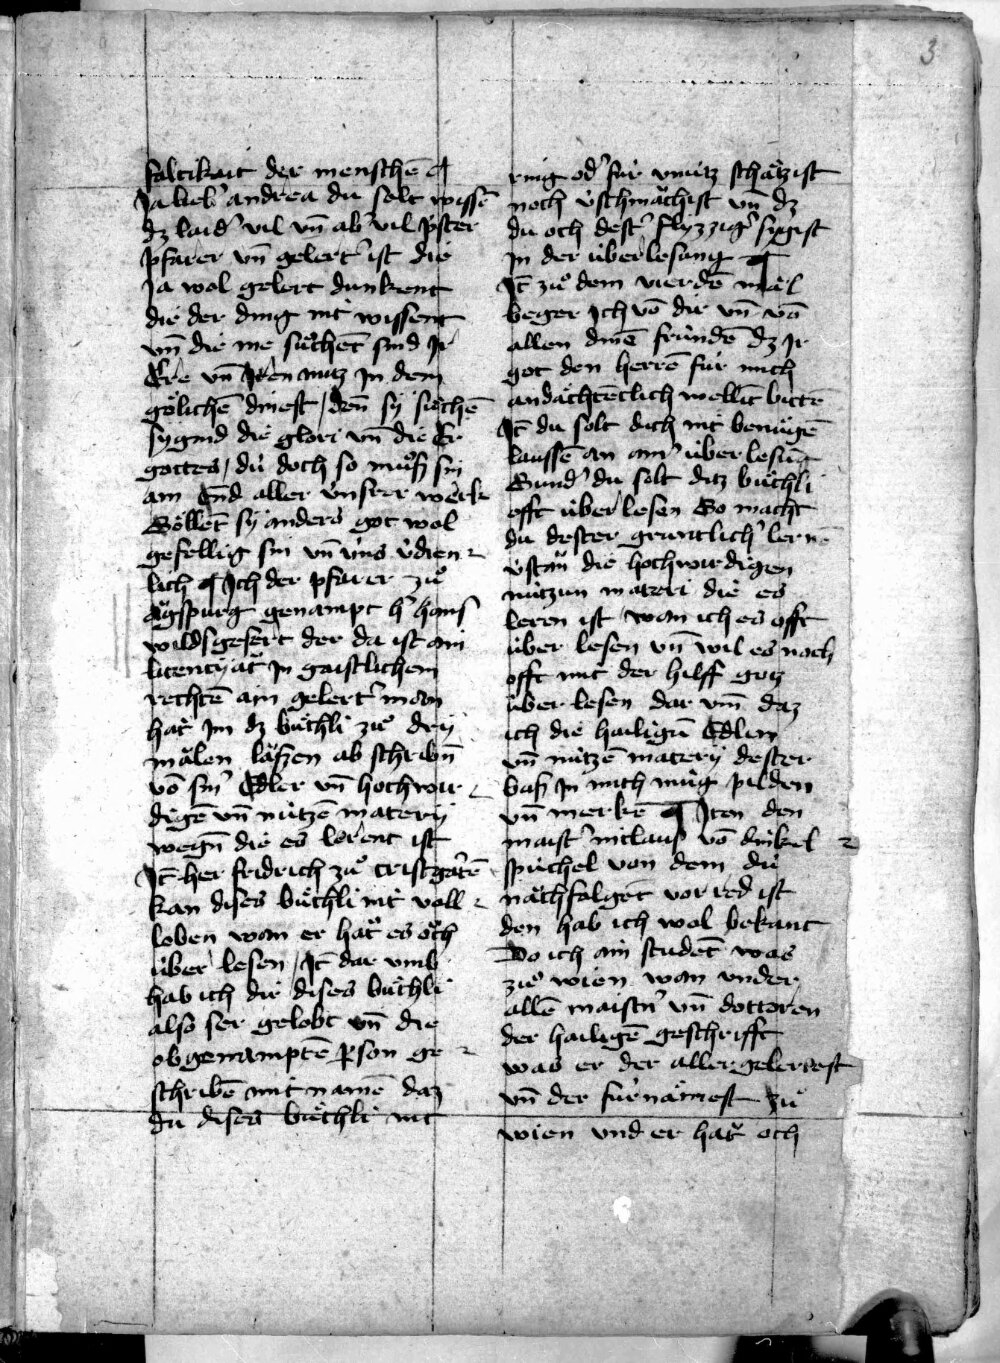 3
faltikait der menschē ¶
Ja lieb' andrea du solt wissē
dz laid' vil vn̄ ab' vil p̄ster
pfarer vn̄ gelert' ist die
Ja wol gelert dunkent
die der ding nit wissent
vn̄ die me sůchēt sind Jr
Ere vn̄ Jren nutz Jn dem
götlichē dinest / denn sy sůchē
sygind die glori vn̄ die Er
gottes / dú doch so můß sin
am End aller vnsrer werck
Söllēt sy anders got wol
gefellig sin vn̄ vns v̉dien
lich ¶ Jch der pfarer zů
Augspurg genampt h' hans
wildsgefert der da ist ain
licencyat Jn gaistlichem
rechtē ain gelert' man
hat Jm dz bůchli zů dry
malen laßen ab schribn̄
vō sin' Edler vn̄ hochwir
digē vn̄ nützē matery
wegn̄ die es lerent ist
Jt̄ her fridrich zů cristgartē
kan dises bůchli nit voll
loben wan er hat es och
über lesen / Jt̄ dar vmb
hab ich dir dises bůchli
also ser gelobt vn̄ die
obgenamptē p̱son ge
schribē mit namē daz
du dises bůchli nit
ring od' für vnnütz schätzist
noch v̉schmachist vn̄ dz
du och dest' flyzzig' sygist
Jn der überlesung ¶
Jt̄ zů dem vierdē mäl
beger Jch vō dir vn̄ vō
allen dinē fründē dz Jr
got den herrē für mich
andächtēclich wellīt bittē
Jt̄ du solt dich nit benügē
laussē an ain' über lesūg
Sund' du solt ditz bůchli
offt über lesen So macht
du dester gruntlich' lernē
v̉stan die hochwirdigen
nützun materi die es
leren ist wan ich es offt
über lesen vn̄ wil es noch
offt mit der hilff gotz
über lesen dar vm̄ daz
ich die hailigū Edlun
vn̄ nützē matery dester
baß Jn mich müg pilden
vn̄ merkē ¶ Jtem den
maist' niclaus vō dinkel
spüchel von dem dú
nachfolgēt vor red ist
den hab ich wol bekant
Do ich ain studēt was
zů wien wan vnder
allē maistn' vn̄ dottoren
der hailigē geschrifft
was er der aller gelertest
vn̄ der fürnämest zů
wien vnd er hat och